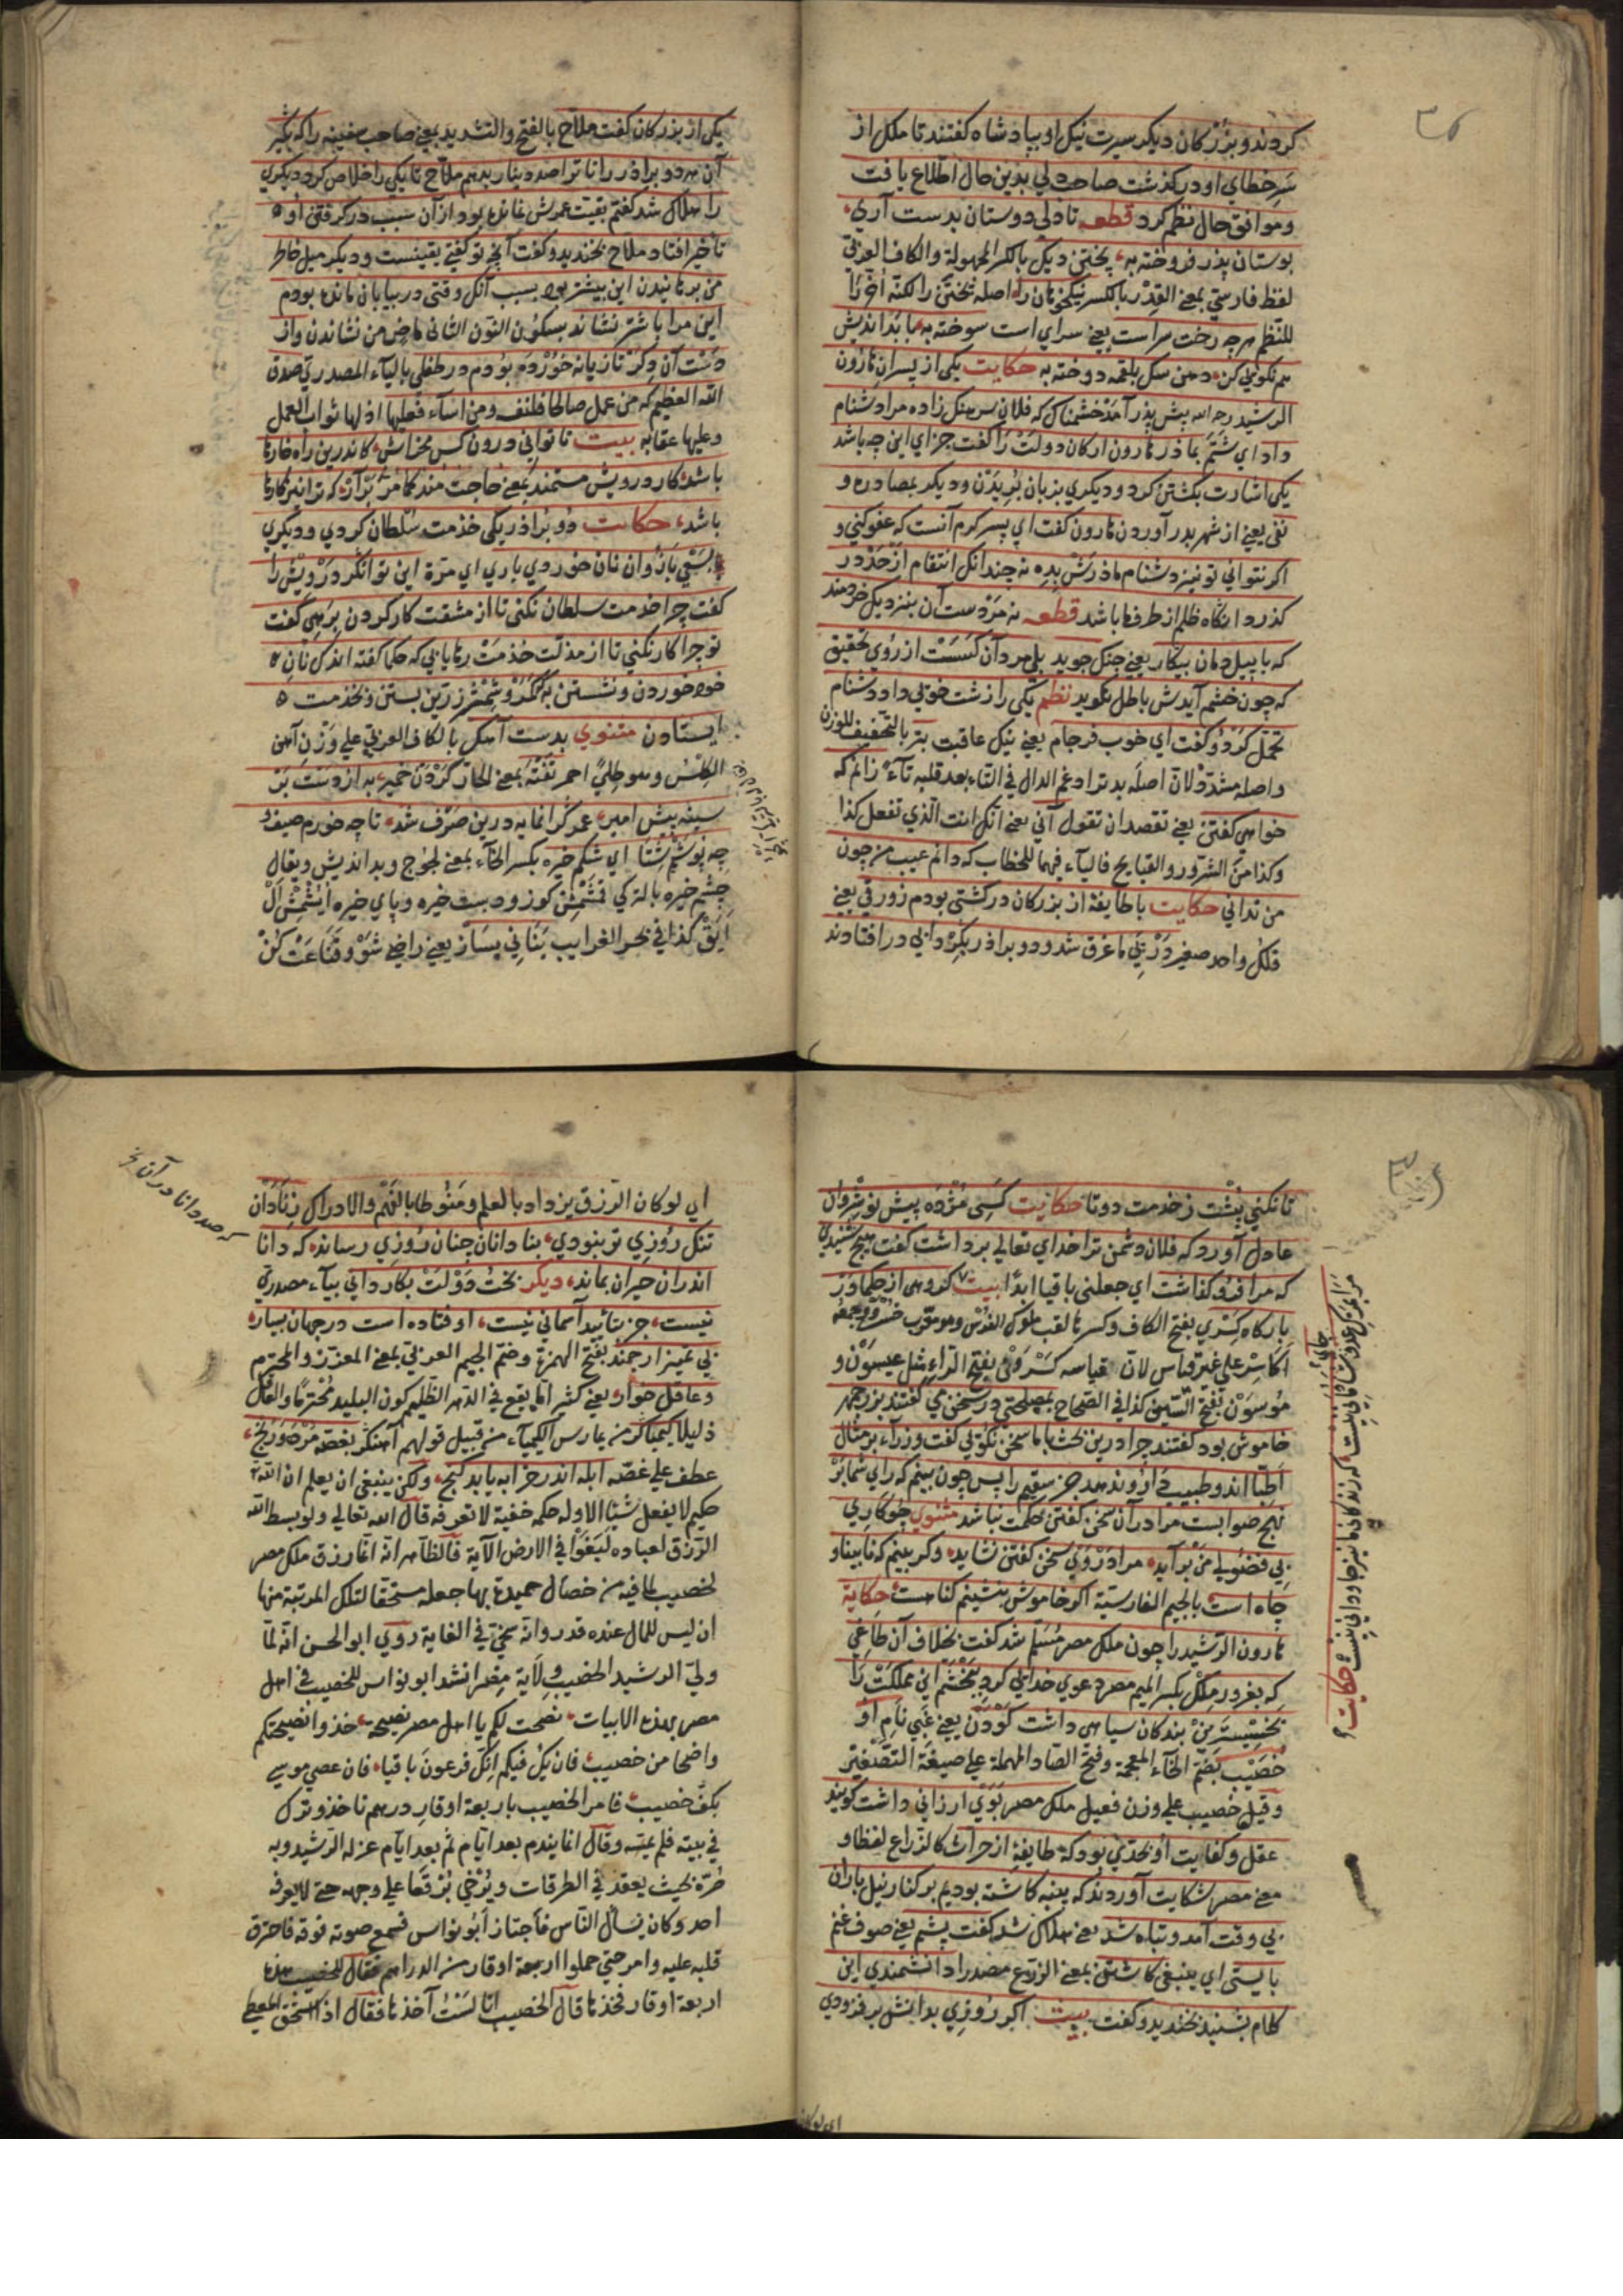 ٣٤
كردند و بزركان ديكر سيرت نيك او بپادشاه كفتند تا ملك از
سر خطاي او دركذشت صاحب دلي بدين حال اطلاع يافت
و موافق حال نظم كرد قطعه تا دل دوستان بدست آري
بوستان پدر فروخته به پختن ديك بالكسر المجهولة والكاف العربي
لفظ فارسي بمعنى القدر بالكسر نيكخواهان را اصله پختن را لكنه اخر را
للنظم هرچه رخت سراست يعني سراي است سوخته به با بدانديش
هم نكوئي كن دهن سك بلقمه دوخته به حكايت يكي از پسران هارون
الرشيد رحمه الله پيش پدر آمد خشمناك كه فلان سرهنك زاده مرا دشنام
داد اي شتم بمادر هارون اركان دولت را كفت جزاي اين چه باشد
يكي اشارت بكشتن كرد و ديكري بزبان بريدن و ديكر بمصادره و
نفي يعني از شهر بدر آوردن هارون كفت اي پسر كرم آنست كه عفو كني و
اكر نتواني تو نيز دشنام مادرش بده نه چندانكه انتقام از حد در
كذرد آنكاه ظلم از طرف ما باشد قطعه نه مردست آن بنزديك خردمند
كه با پيل دمان پيكار يعني جنك جويد بلي مرد آن كسست از روي تحقيق
كه چون خشم آيدش باطل نكويد نظم يكي را زشت خوئي داد دشنام
تحمل كرد و كفت اي خوب فرجام يعني نيك عاقبت بتر بالتخفيف للوزن
واصله مشدد لان اصله بدتر ادغم الدال في التاء بعد قلبه تاء زانم كه
خواهي كفتن يعني تقصد ان تقول آني يعني انك انت الذي تفعل كذا
وكذا من الشرور والقبايح فالياء فيهما للخطاب كه دانم عيب من چون
من نداني حكايت با طايفة از بزركان در كشتي بودم زورقي يعني
فلك واحد صغير در پي ما غرق شد و دو برادر بكردابي در افتادند
يكي از بزركان كفت ملاح بالفتح والتشديد يعني صاحب سفينه را كه بكير
آن هر دو برادر را تا ترا صد دينار بدهم ملاح تا يكي را خلاص كرد ديكري
را هلاك شد كفتم بقيت عمرش نمانده بود از آن سبب در كرفتن او
تأخير افتاد ملاح بخنديد و كفت آنچه تو كفتي يقينست و ديكر ميل خاطر
من برهانيدن اين بيشتر بود بسبب آنكه وقتي در بيابان مانده بودم
اين مرا با شتر نشاند بسكون النون الثاني ماض من نشاندن و از
دست آن دكر تازيانه خورده بودم در طفلي بالياء المصدرية صدق
الله العظيم كه من عمل صالحا فلنفسه ومن اساء فعليها اذ لها ثواب العمل
وعليها عقابه بيت تا تواني درون كس مخراش كاندرين راه خارها
باشد كار درويش مستمند بمعنى حاجت مند كامر برآر كه ترا نيز كارها
باشد حكايت دو برادر يكي خدمت سلطان كردي و ديكري
بسعي بازوان نان خوردي باري اي مرة اين توانكر درويش را
كفت چرا خدمت سلطان نكني تا از مشقت كار كردن برهي كفت
تو چرا كار نكني تا از مذلت خدمت رهايابي كه حكما كفته اند كه نان
خود خوردن و نشستن به كه كمر و شمشير زرين بستن و بخدمت
ايستادن مثنوي بدست آهك بالكاف العربي على وزن آهن
الكلس وهو طلي احمر تفته بمعنى الحار كردن خمير به از دست بر
سينه پيش امير عمر كرانمايه درين صرف شد تا چه خورم صيف و
چه پوشم شتا اي شكم خيره بكسر الخاء بمعنى لجوج و بدانديش ويقال
چشم خيره بالتركي قمشمش كوز و دست خيره و پاي خيره ايشمش ال
ايق كذا في بحر الغرايب بناني بساز يعني راضي شو و قناعت كن
٣٥
تا نكني پشت ز خدمت دوتا حكايت كسي مژده پيش نوشروان
عادل آورد كه فلان دشمن ترا خداي تعالى برداشت كفت هيچ شنيدي
كه مرا فرو كذاشت اي جعلني باقيا ابدا بيت كروهي از حكما در
باركاه كسري بفتح الكاف وكسرها لقب ملوك الفرس وهو معرب خسرو وجمعه
اكاسر على غير قياس لان قياسه كسرون بفتح الراء مثل عيسون و
موسون بفتح السين كذا في الصحاح بمصلحتي در سخن مي كفتند بزرجمهر
خاموش بود كفتند چرا درين بحث با ما سخن نكوئي كفت وزراء بر مثال
اطبا اند و طبيب دارو ندهد جز سقيم را پس چون بينم كه راي شما بر
نهج صوابست مرا در آن سخن كفتن حكمت نباشد مثنوي چو كاري
بي فضولي من برآيد مرا در وي سخن كفتن نشايد و كر بينم كه نابينا و
چاه است بالجيم الفارسية اكر خاموش بنشينم كناهست حكاية
هارون الرشيد را چون ملك مصر مسلم شد كفت بخلاف آن طاغي
كه بغرور ملك بكسر الميم مصر دعوي خدايي كرد نبخشم اين مملكت را
بخسيسترين بندكان سياهي داشت كودن يعني غبي نام او
خصيب بضم الخاء المعجمة وفتح الصاد المهملة على صيغة التصغير
وقيل خصيب على وزن فعيل ملك مصر بوي ارزاني داشت كويند
عقل و كفايت او بحدي بود كه طايفة از حراث كالزراع لفظا و
معنى مصر شكايت آوردند كه پنبه كاشته بوديم بر كنار نيل باران
بي وقت آمد و تباه شد يعني هلاك شد كفت پشم يعني صوف غنم
بايستي اي ينبغي كاشتن بمعنى الزرع مصدرا دانشمندي اين
كلام بشنيد بخنديد و كفت بيت اكر روزي بدانش بر فزودي
مرا بمرك عدو جاي شادماني نيست كه زندكاني ما نيز جاوداني نيست حكايت
اي لو كان الرزق يزداد بالعلم ومنوطا بالفهم والادراك ز نادان
تنك روزي تر نبودي بنادانان چنان روزي رساند كه دانا
اندران حيران بماند ديكر بخت و دولت بكارداني بياء مصدري
نيست جز بتائيد آسماني نيست اوفتاده است در جهان بسيار
بي تميز ارجمند بفتح الهمزة وضم الجيم العربي بمعنى المعزز والمحترم
و عاقل خوار يعني كثيرا ما يقع في الدهر الظليم كون البليد محترما والعاقل
ذليلا كيمياكر من يمارس الكيمياء من قبيل قولهم آهنكر بغصه مرده و رنج
عطف على غصه ابله اندر خرابه يابد كنج ولكن ينبغي ان يعلم ان الله
حكيم لا يفعل شيئا الا وله حكمة خفية لا تعرف قال الله تعالى ولو بسط الله
الرزق لعباده لبغوا في الارض الآية فالظاهر انه انما رزق ملك مصر
لخصيب لما فيه من خصال حميدة بها جعله مستحقا لتلك المرتبة منها
ان ليس للمال عنده قدر وانه سخي في الغاية روي ابو الحسن انه لما
ولي الرشيد الخصيب ولاية مصر انشد ابو نواس للخصيب في اهل
مصر بهذه الابيات نصحت لكم يا اهل مصر نصيحة خذوا نصيحتكم
واضحا من خصيب فان يك فيكم افك فرعون باقيا فان عصي موسى
بكف خصيب فامر الخصيب باربعة اوقار درهم فاخذ وترك
في بيته فلم يمسه وقال انما يندم بعد ايام ثم بعد ايام عزله الرشيد وبه
مرة بحيث يقعد في الطرقات ويرخي برقعا على وجهه حتى لا يعرفه
احد وكان يسأل الناس فاجتاز ابو نواس فسمع صوته فوقه فاحترق
قلبه عليه وامر حتى حملوا اربعة اوقار من الدراهم فقال للخصيب هذه
اربعة اوقار فخذها قال الخصيب انا لست آخذها فقال اذا استحق المعطي